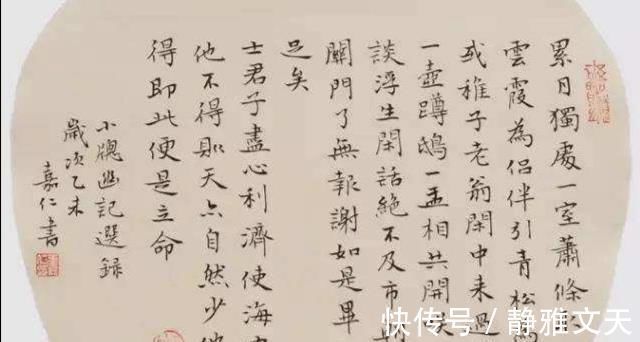 累月獨處一室蕭條
雲霞為侶伴引青松為
或稚子老翁閑中来過
一壺蹲鴟一盂相共開
談浮生閑話絕不及市
關門了無報謝如是畢
足矣
士君子盡心利濟使海
他不得則天亦自然少他
得即此便是立命
小牕幽記選錄
歲次乙未
嘉仁書
快传号 / 静雅文天